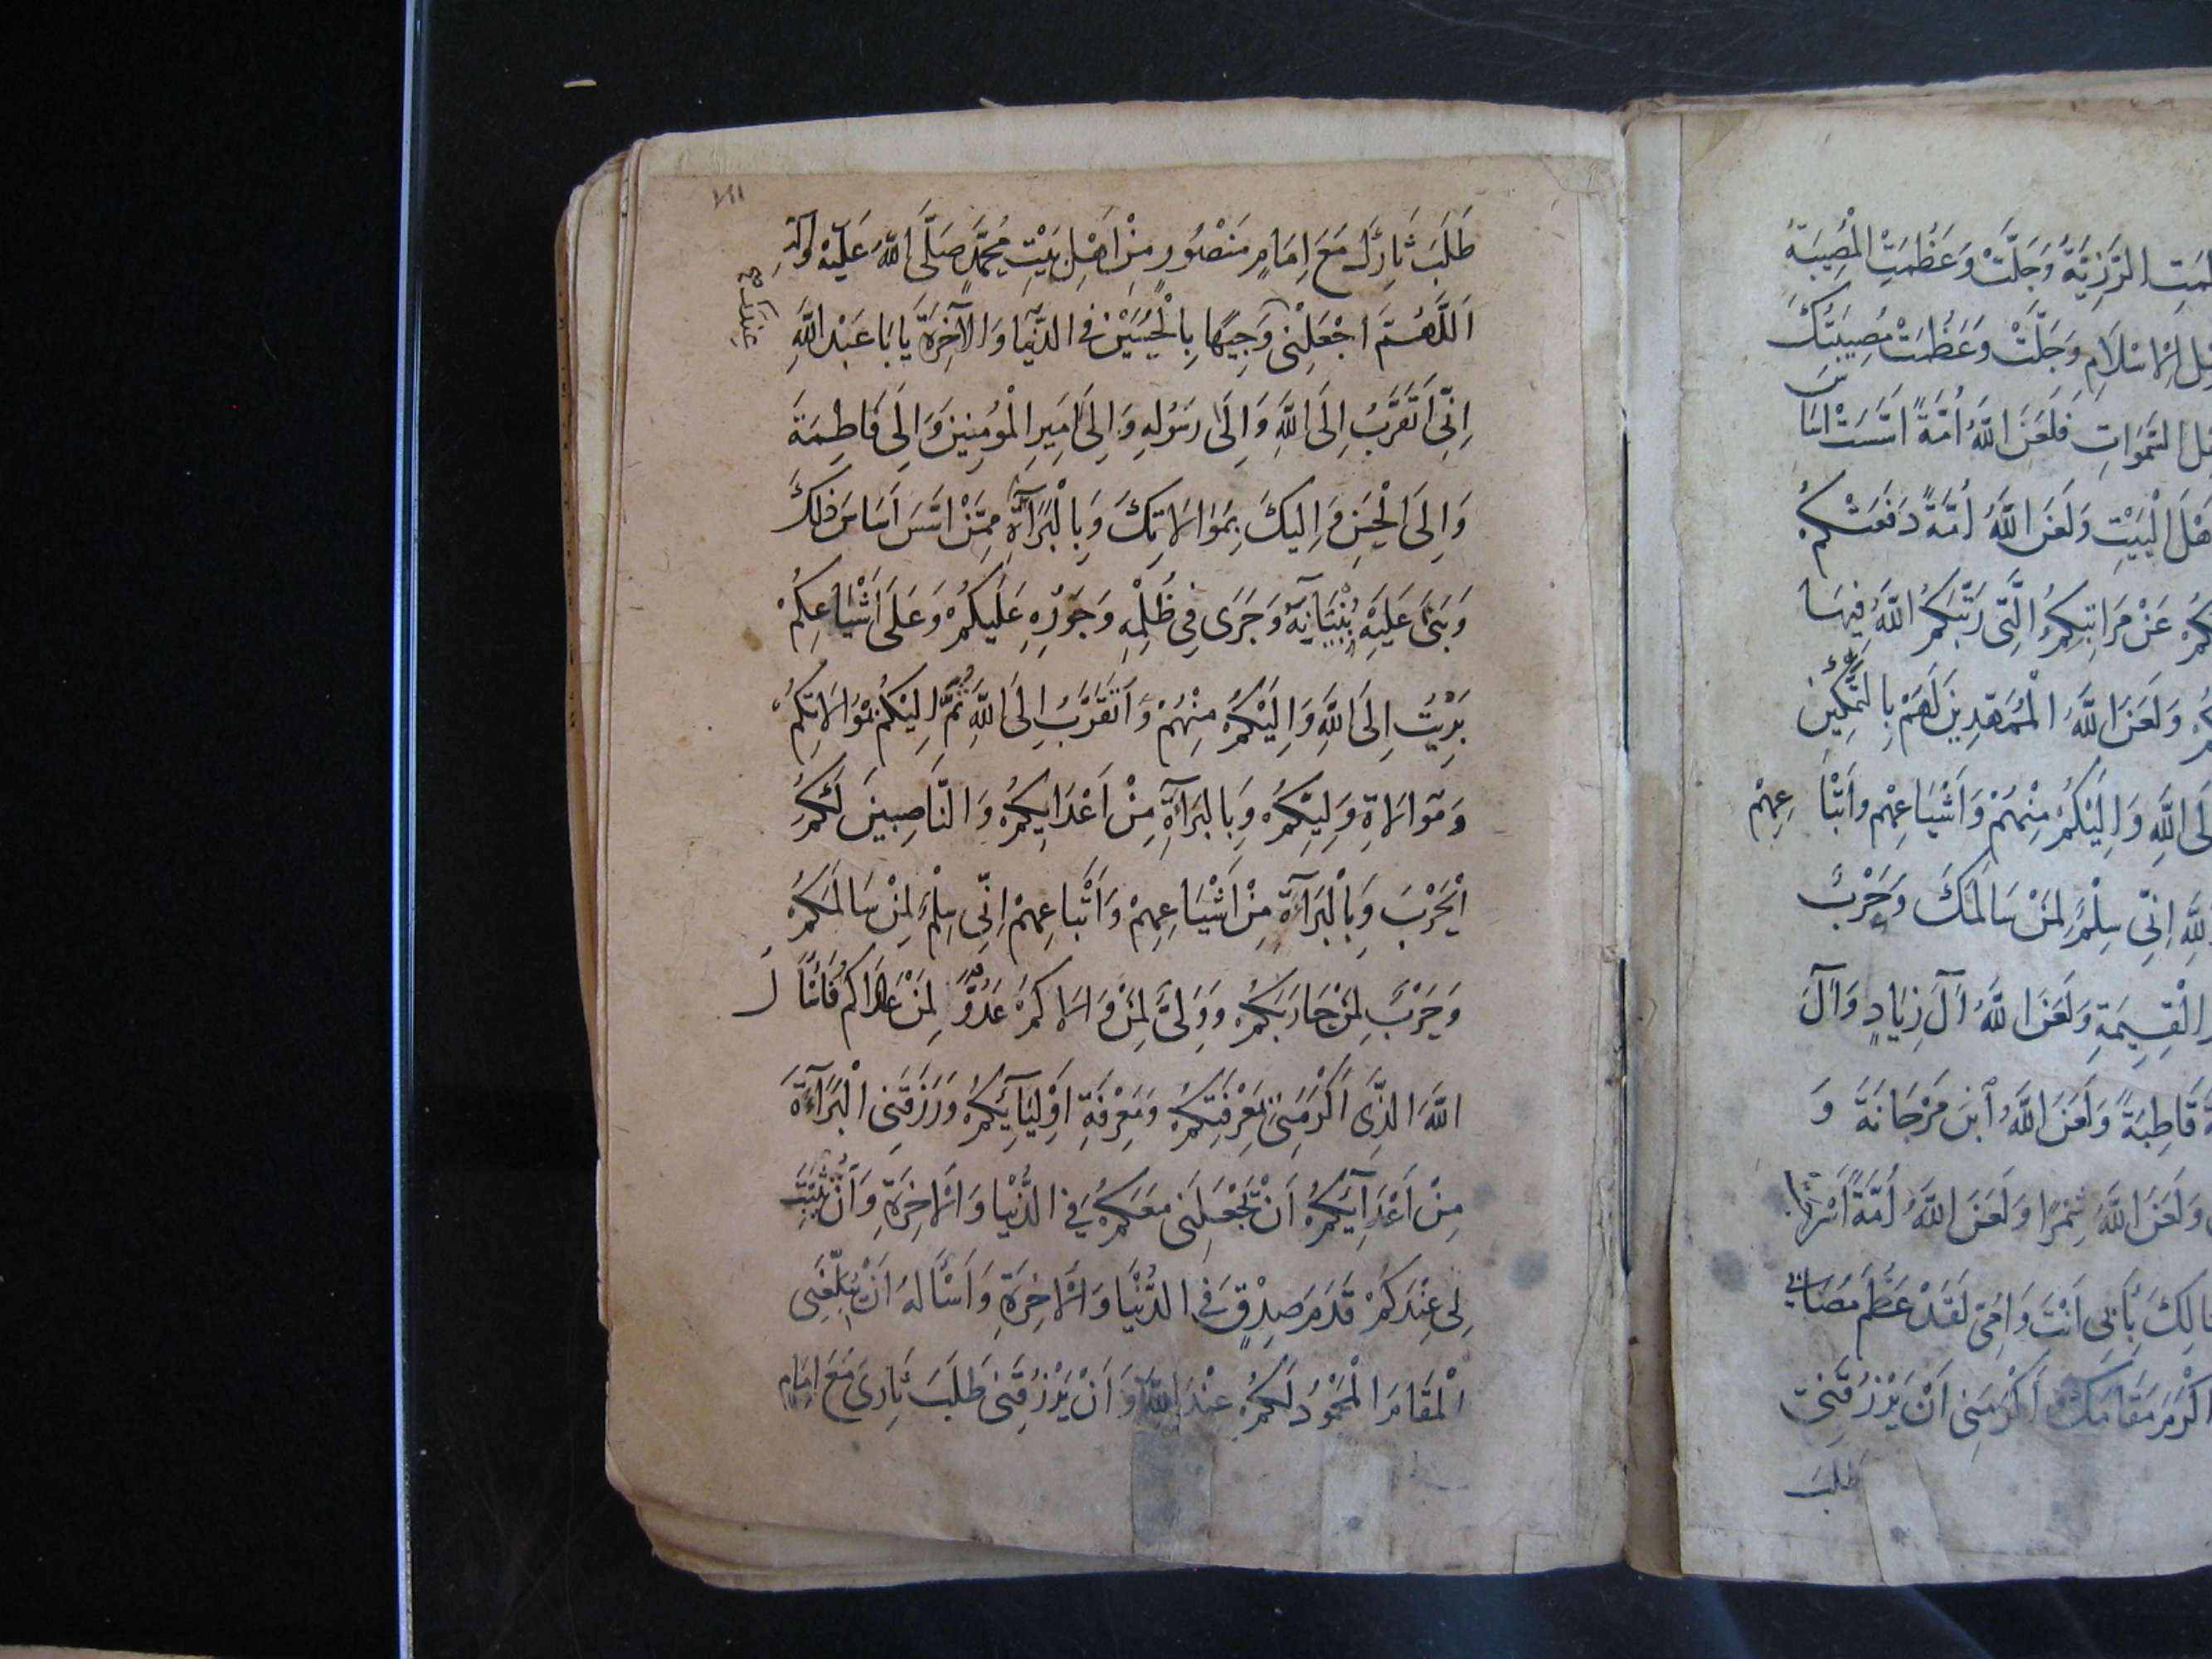 لمت الرَّزِيَّةُ وَجَلَّتْ وَعَظُمَتِ الْمُصِيبَةُ
هل الاسْلَامِ وَجَلَّتْ وَعَظُمَتْ مُصِيبَتُكَ
هل السَّمَوَاتِ فَلَعَنَ اللَّهُ اُمَّةً اَسَّسَتْ اَسَاسَ
هْلَ الْبَيْتِ وَلَعَنَ اللَّهُ اُمَّةً دَفَعَتْكُمْ
كُمْ عَنْ مَرَاتِبِكُمُ الَّتِي رَتَّبَكُمُ اللَّهُ فِيهَا
كُمْ وَلَعَنَ اللَّهُ الْمُمَهِّدِينَ لَهُمْ بِالتَّمْكِينِ
لَى اللَّهِ وَاِلَيْكُمْ مِنْهُمْ وَاَشْيَاعِهِمْ وَاَتْبَاعِهِمْ
للَّهِ اِنِّي سِلْمٌ لِمَنْ سَالَمَكَ وَحَرْبٌ
الْقِيمَةِ وَلَعَنَ اللَّهُ آلَ زِيَادٍ وَآلَ
ةَ قَاطِبَةً وَلَعَنَ اللَّهُ ابْنَ مَرْجَانَةَ وَ
وَلَعَنَ اللَّهُ شِمْرًا وَلَعَنَ اللَّهُ اُمَّةً اَسْرَجَتْ
تَالِكَ بِأَبِي اَنْتَ وَاُمِّي لَقَدْ عَظُمَ مُصَابِي
اَكْرَمَ مَقَامَكَ اَكْرَمَنِي اَنْ يَرْزُقَنِي
طَلَبَ
طَلَبَ ثَارِكَ مَعَ اِمَامٍ مَنْصُورٍ مِنْ اَهْلِ بَيْتِ مُحَمَّدٍ صَلَّى اللَّهُ عَلَيْهِ وَآلِهِ
اَللَّهُمَّ اجْعَلْنِي وَجِيهًا بِالْحُسَيْنِ فِي الدُّنْيَا وَالْآخِرَةِ يَا بَا عَبْدِ اللَّهِ
عِنْدَكَ صح
اِنِّي اَتَقَرَّبُ اِلَى اللَّهِ وَاِلَى رَسُولِهِ وَاِلَى اَمِيرِ الْمُؤْمِنِينَ وَاِلَى فَاطِمَةَ
وَاِلَى الْحَسَنِ وَاِلَيْكَ بِمُوَالَاتِكَ وَبِالْبَرَآءَةِ مِمَّنْ اَسَّسَ اَسَاسَ ذَلِكَ
وَبَنَى عَلَيْهِ بُنْيَانَهُ وَجَرَى فِي ظُلْمِهِ وَجَوْرِهِ عَلَيْكُمْ وَعَلَى اَشْيَاعِكُمْ
بَرِئْتُ اِلَى اللَّهِ وَاِلَيْكُمْ مِنْهُمْ وَاَتَقَرَّبُ اِلَى اللَّهِ ثُمَّ اِلَيْكُمْ بِمُوَالَاتِكُمْ
وَمُوَالَاةِ وَلِيِّكُمْ وَبِالْبَرَآءَةِ مِنْ اَعْدَائِكُمْ وَالنَّاصِبِينَ لَكُمُ
الْحَرْبَ وَبِالْبَرَآءَةِ مِنْ اَشْيَاعِهِمْ وَاَتْبَاعِهِمْ اِنِّي سِلْمٌ لِمَنْ سَالَمَكُمْ
وَحَرْبٌ لِمَنْ حَارَبَكُمْ وَوَلِيٌّ لِمَنْ وَالَاكُمْ عَدُوٌّ لِمَنْ عَادَاكُمْ فَاَسْأَلُ
اللَّهَ الَّذِي اَكْرَمَنِي بِمَعْرِفَتِكُمْ وَمَعْرِفَةِ اَوْلِيَآئِكُمْ وَرَزَقَنِي الْبَرَآءَةَ
مِنْ اَعْدَآئِكُمْ اَنْ يَجْعَلَنِي مَعَكُمْ فِي الدُّنْيَا وَالْاخِرَةِ وَاَنْ يُثَبِّتَ
لِي عِنْدَكُمْ قَدَمَ صِدْقٍ فِي الدُّنْيَا وَالْاخِرَةِ وَاَسْأَلُهُ اَنْ يُبَلِّغَنِي
الْمَقَامَ الْمَحْمُودَ لَكُمْ عِنْدَ اللَّهِ وَاَنْ يَرْزُقَنِي طَلَبَ ثَارِي مَعَ اِمَامٍ